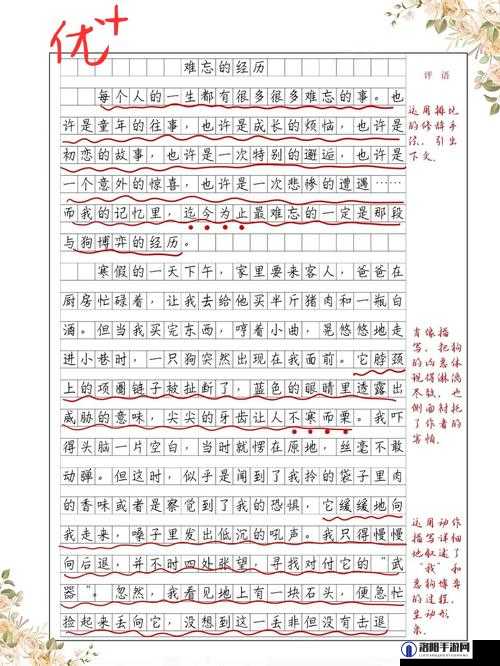 优+
难忘的经历
评语
每个人的一生都有很多很多难忘的事。也
许是童年的往事,也许是成长的烦恼,也许是
初恋的故事,也许是一次特别的邂逅,也许是
一个意外的惊喜,也许是一次悲惨的遭遇……
而我的记忆里,迄今为止最难忘的一定是那段
与狗博弈的经历。
运用排比
的修辞手
法,引出
下文。
寒假的一天下午,家里要来客人,爸爸在
厨房忙碌着,让我去给他买半斤猪肉和一瓶白
酒。但当我买完东西,哼着小曲,晃悠悠地走
进小巷时,一只狗突然出现在我面前。它脖颈
上的项圈链子被扯断了,蓝色的眼睛里透露出
威胁的意味,尖尖的牙齿让人不寒而栗。我吓
得头脑一片空白,当时就愣在原地,丝毫不敢
动弹。但这时,似乎是闻到了我拎的袋子里肉
的香味或者是察觉到了我的恐惧,它缓缓地向
我走来,嗓子里发出低沉的吼声。我只得慢慢
向后退,并不时四处张望,寻找对付它的“武
器”。忽然,我看见地上有一块石头,便急忙
捡起来丢向它,没想到这一丢非但没有击退
肖像描
写,把狗
的凶恶体
现得淋漓
尽致,也
侧面衬托
了作者的
害怕。
运用动作
描写详细
地叙述了
“我”和
恶狗博弈
的过程,
生动形
象。
洛阳手游网